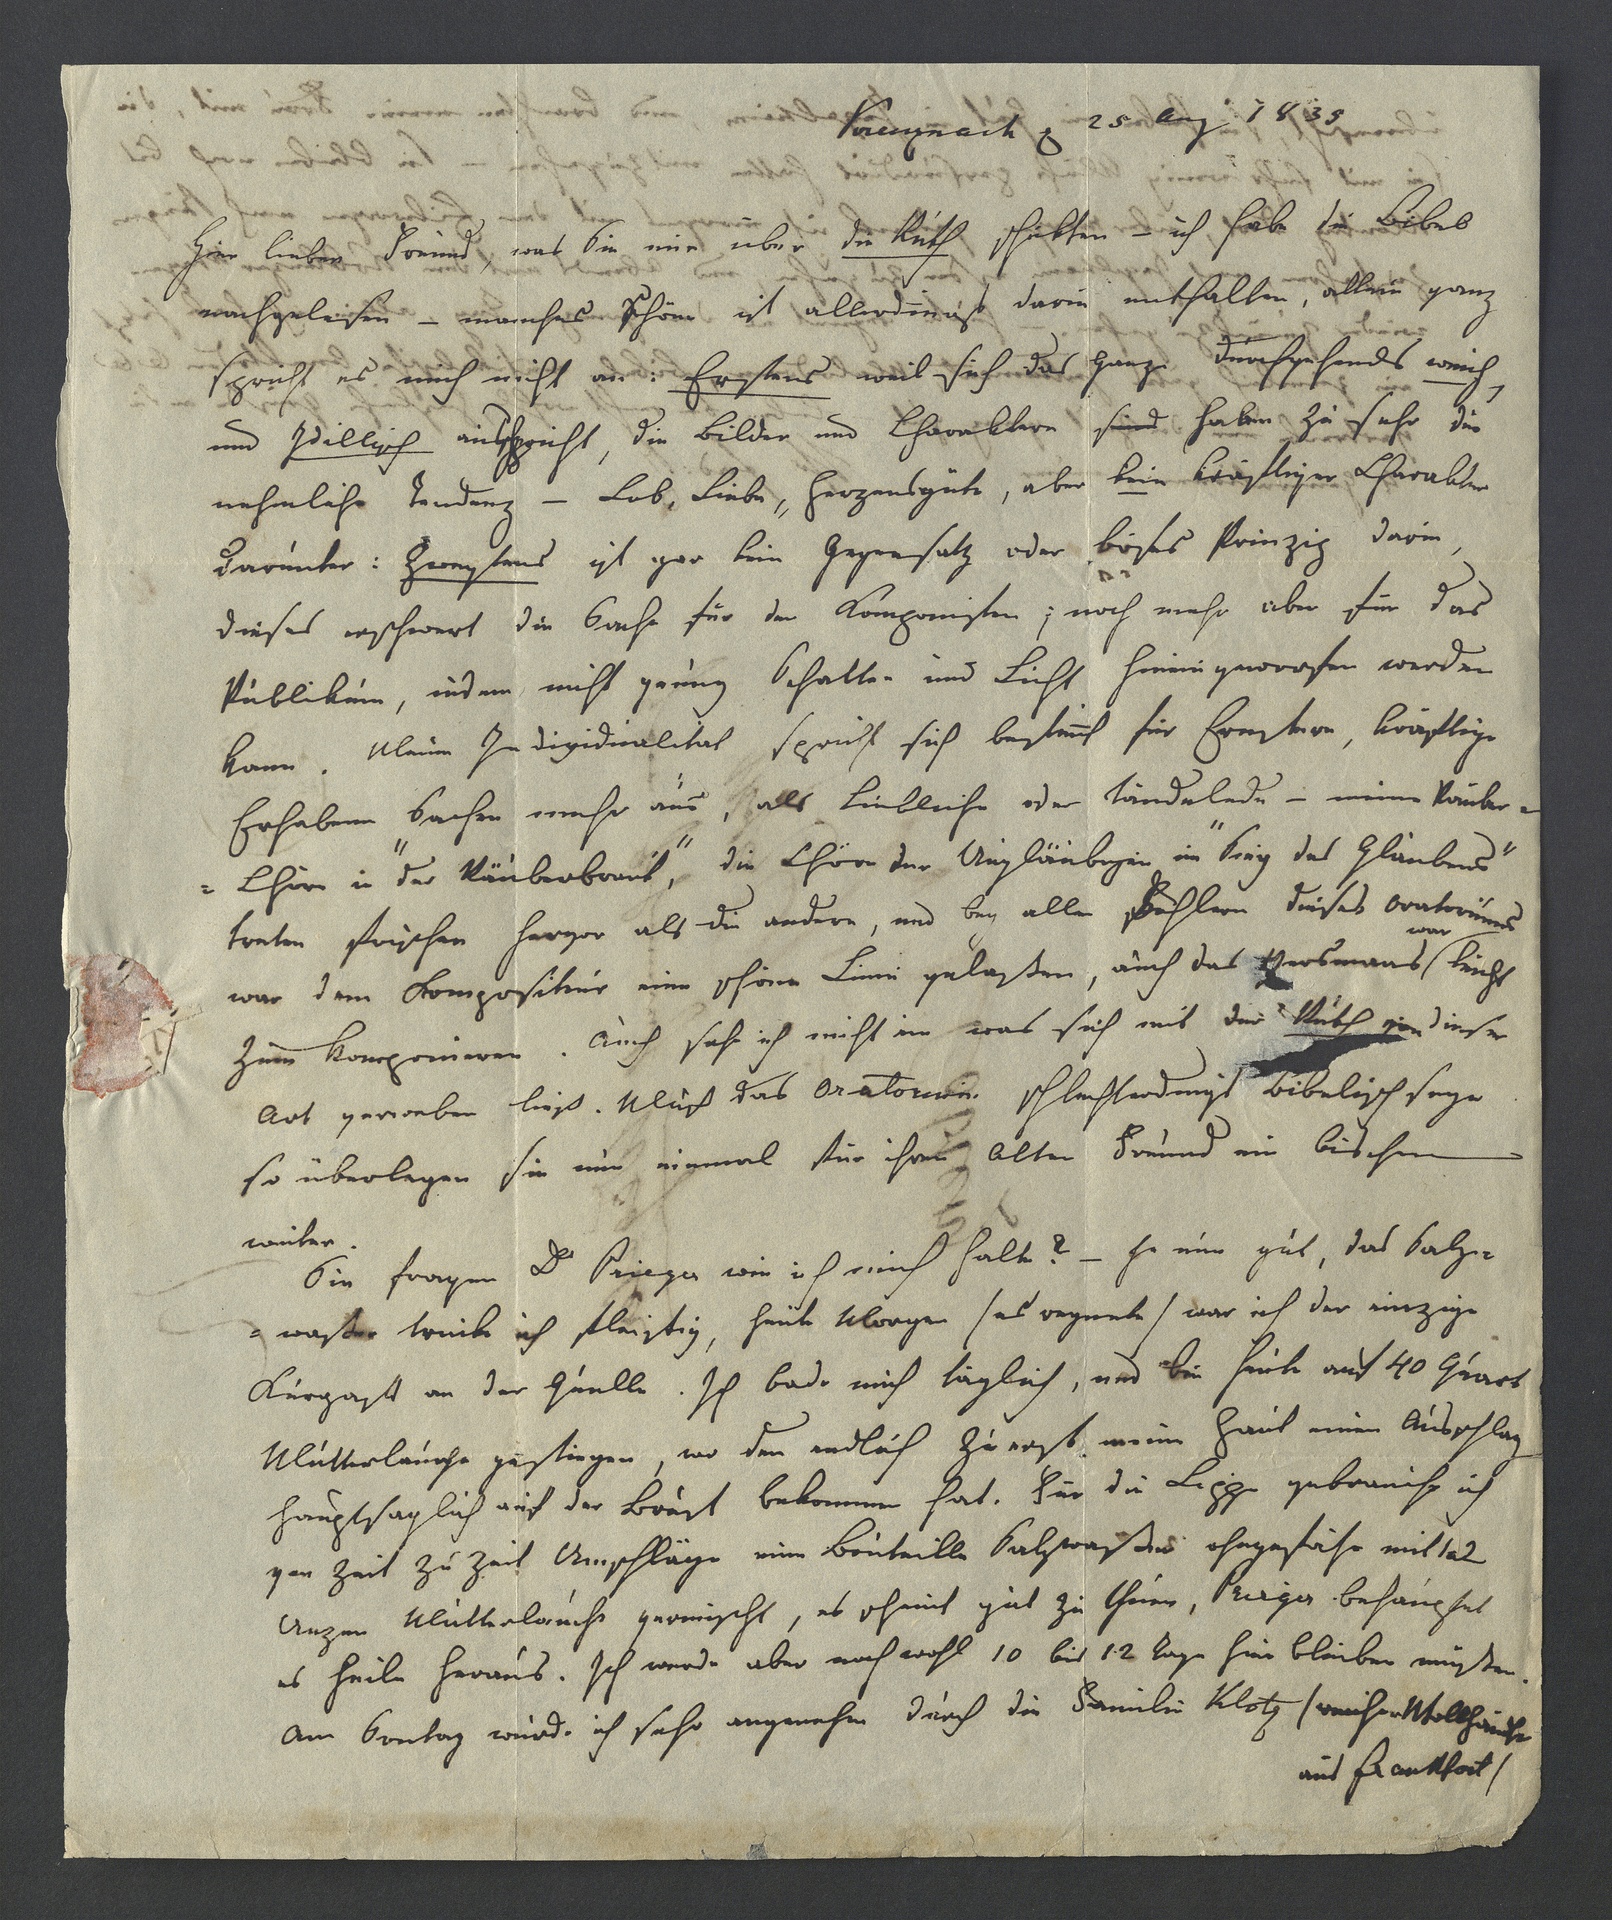 Kreuznach d 25 Aug 1835
Hier lieber Freund, was Sie mir über die Ruth schickten – ich habe die Bibel
nachgelesen – manches Schöne ist allerdings darin enthalten, allein ganz
spricht es mich nicht an: Erstens weil sich das Ganze durchgehends weich,
und Idillisch ausspricht, die Bilder und Charaktere sind haben zu sehr die
nehmliche Tendenz – Lob, Liebe, Herzensgüte, aber kein kräftiger Charakter
darunter: Zweytens ist gar kein Gegensatz oder böses Prinzip darin,
dieses erschwert die Sache für den Komponisten; noch mehr aber für das
Publikum, indem nicht genug Schatten und Licht hineingeworfen werden
kann. Meine Individualität spricht sich bestimmt für Ernstere, kräftige
Erhabene Sachen mehr aus, als liebliche oder tändelnde – meine Räuber=
=Chöre in "der Räuberbraut", die Chöre der Ungläubigen im "Sieg des Glaubens"
treten frischer hervor als die andere, und bey allen Fehlern dieses Oratoriums
war dem Kompositeur eine schöne Linie gelaßen, auch das Versmaas war leicht
zum komponieren. Auch sehe ich nicht ein was sich mit der Ruth von dieser
Art verweben ließ. Muß das Oratorium schlechterdings Bibelisch seyn
so überlegen sie nun einmal für ihren alten Freund ein bischen
weiter.
Sie fragen Dr Prieger wie ich mich halte? – he nun gut, das Salz=
=waßer trinke ich fleißig, heute Morgen /es regnete/ war ich der einzige
Kurgast an der Quelle. Ich bade mich täglich, und bin heute auf 40 Quart
Mutterlauge gestiegen, wo den endlich zuerst meine Haut einen Ausschlag
hauptsaglich auf der Brust bekommen hat. Für die Lippe gebrauche ich
von Zeit zu Zeit Umschläge eine Bouteille Salzwaßer ohngefähr mit 1a2
Unzen Mutterlauche vermischt, es scheint gut zu thun, Prieger behauptet
es heile heraus. Ich werde aber noch wohl 10 bis 12 Tage hier bleiben müßen.
Am Sontag wurde ich sehr angenehm durch die Familie Klotz /reicher Wollhändler
aus Frankfort/